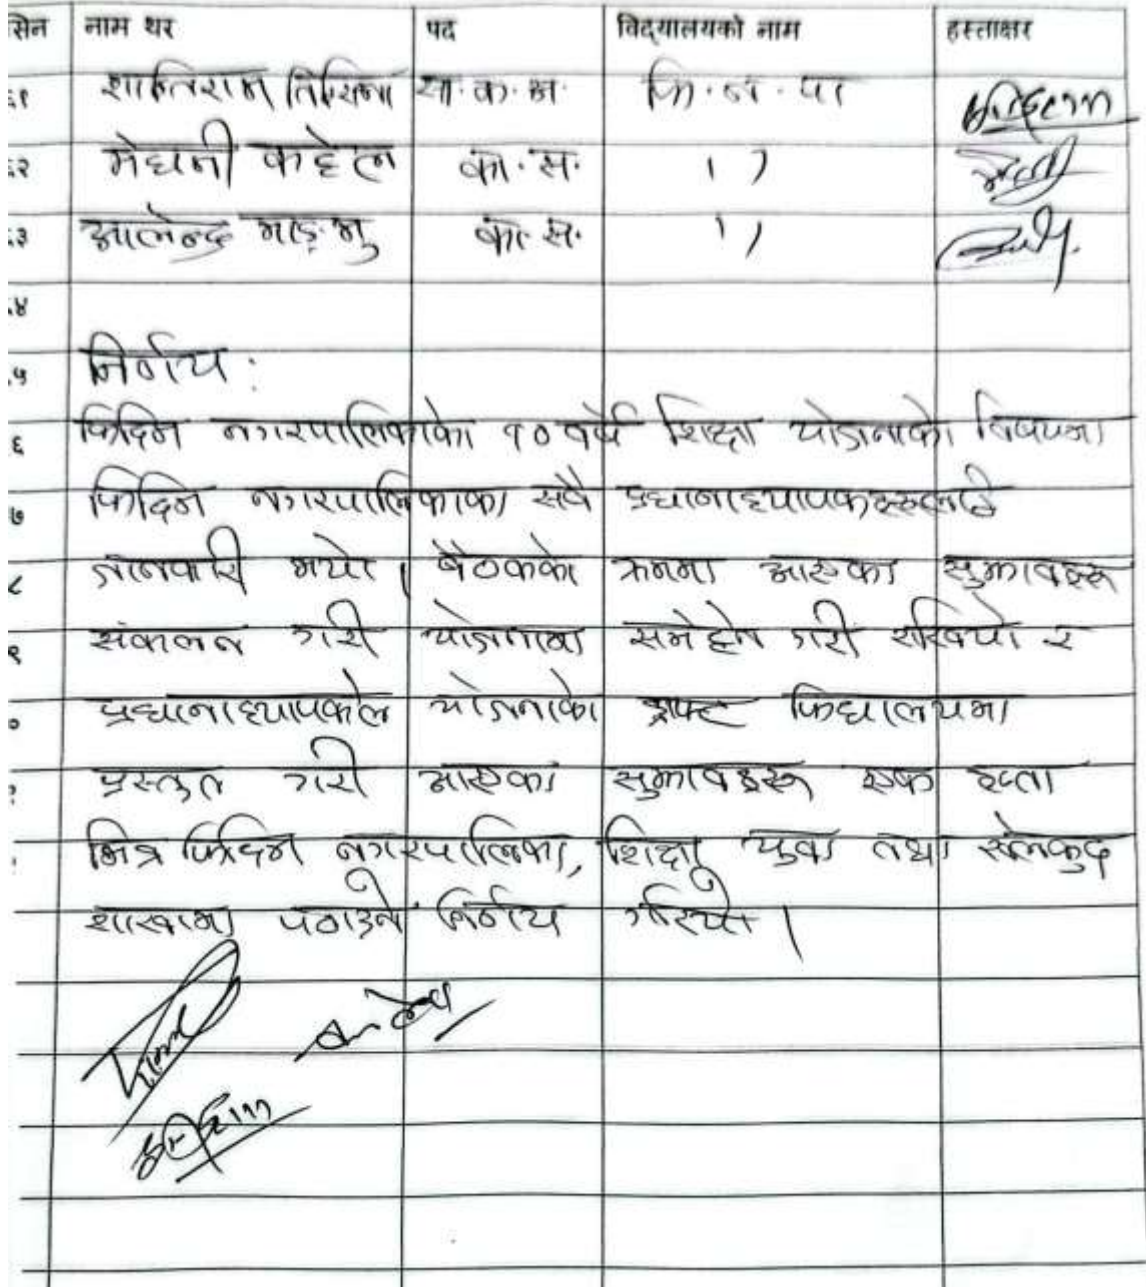 सिन नाम थर पद विद्यालयको नाम हस्ताक्षर
६१ शान्तिराम तिम्सिना सा.क.अ. फि.न.पा
६२ मेघनी कट्टेल का.स. ''
६३ आलेन्द्र माङ्मु का.स. ''
४
५ निर्णय :
६ फिदिम नगरपालिकाको १० वर्षे शिक्षा योजनाको बिषयमा
७ फिदिम नगरपालिकाका सबै प्रधानाध्यापकहरुलाई
८ जानकारी भयो । बैठकको क्रममा आएका सुझावहरू
९ संकलन गरी योजनामा समेट्ने गरी राखियो र
० प्रधानाध्यापकले योजनाको ड्राफ्ट विद्यालयमा
प्रस्तुत गरी आएका सुझावहरू एक हप्ता
भित्र फिदिम नगरपालिका, शिक्षा युवा तथा खेलकुद
शाखामा पठाउने निर्णय गरियो ।